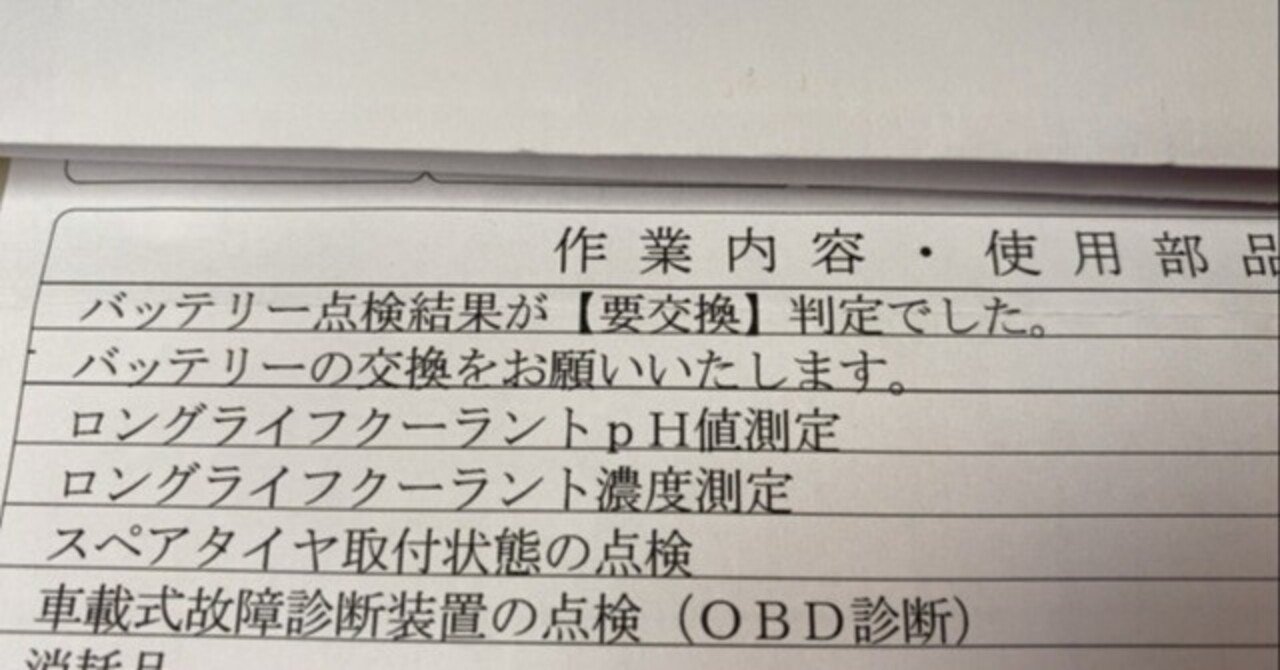 作業内容・使用部品
バッテリー点検結果が【要交換】判定でした。
バッテリーの交換をお願いいたします。
ロングライフクーラントｐＨ値測定
ロングライフクーラント濃度測定
スペアタイヤ取付状態の点検
車載式故障診断装置の点検（ＯＢＤ診断）
消耗品